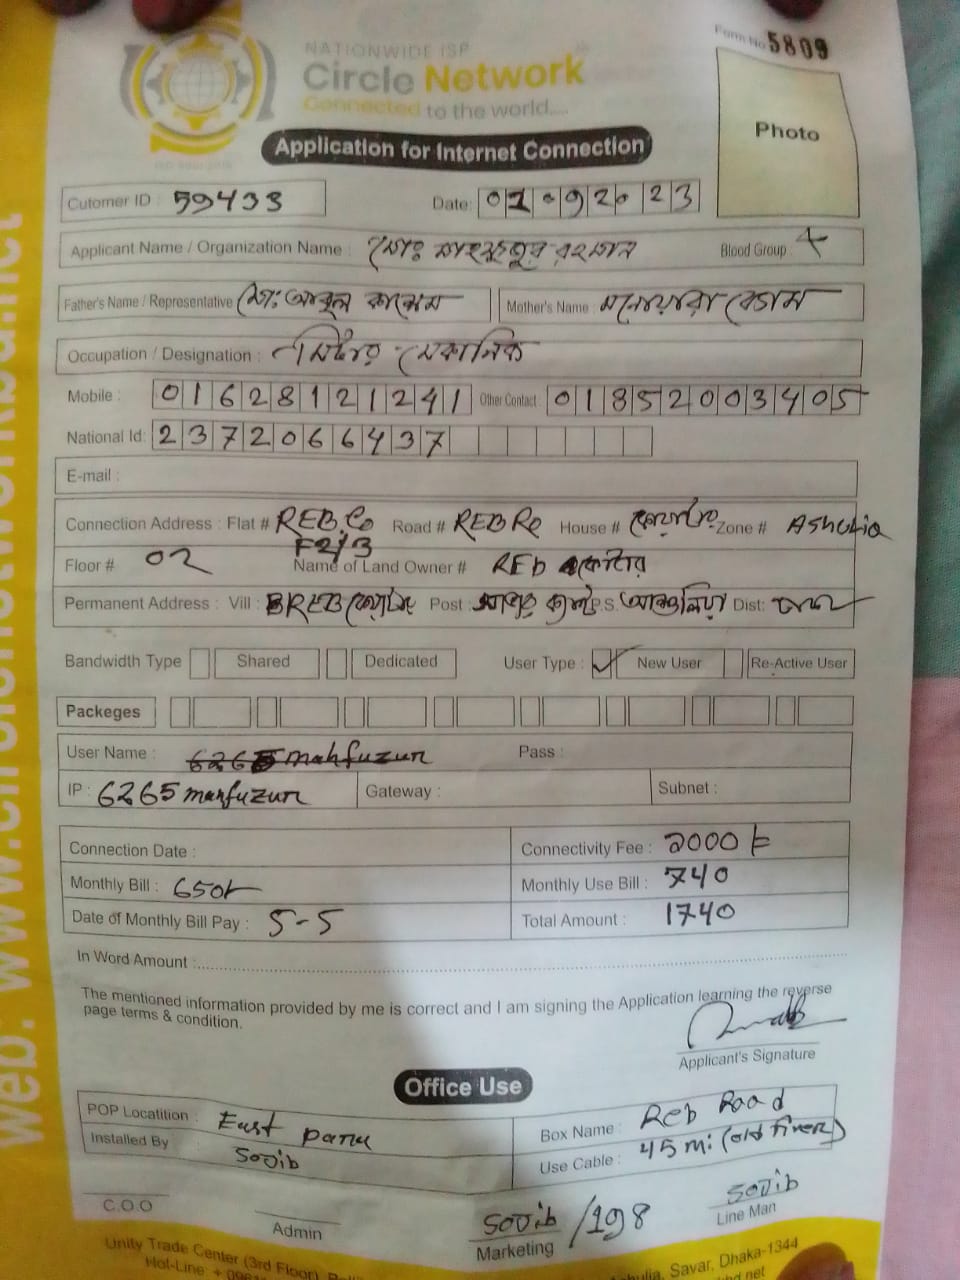 NATIONWIDE ISP
Circle Network
Connected to the world....
Form No 5809
Photo
Application for Internet Connection
Cutomer ID : 59433 Date:
Applicant Name / Organization Name : মোঃ মাহফুজুর রহমান Blood Group :
Father's Name / Representative মোঃ আবুল কাশেম Mother's Name : মনোয়ারা বেগম
Occupation / Designation : মিটার মেকানিক
Mobile : 01628121241 Other Contact : 01852003405
National Id: 2372066437
E-mail :
Connection Address : Flat # REB.Co F2/3 Road # REB Ro House # কোয়ার্টার Zone # Ashulia
Floor # 02 Name of Land Owner # REb কোয়াটার
Permanent Address : Vill : BREB Post : P.S. আশুলিয়া Dist: ঢাকা
Bandwidth Type Shared Dedicated User Type : ✓ New User Re-Active User
Packeges
User Name : mahfuzur Pass :
IP : 6265mahfuzur Gateway : Subnet :
Connection Date : Connectivity Fee : ১000 ৳
Monthly Bill : 650৳ Monthly Use Bill : 740
Date of Monthly Bill Pay : 5-5 Total Amount : 1740
In Word Amount :
The mentioned information provided by me is correct and I am signing the Application learning the reverse
page terms & condition.
Applicant's Signature
Office Use
POP Locatition : East para Box Name : Reb Road
Installed By Sojib Use Cable : 45 mi (old fiver)
C.O.O Admin Sojib /198 Marketing Sojib Line Man
Unity Trade Center (3rd Floor), Savar, Dhaka-1344
Hot-Line: +